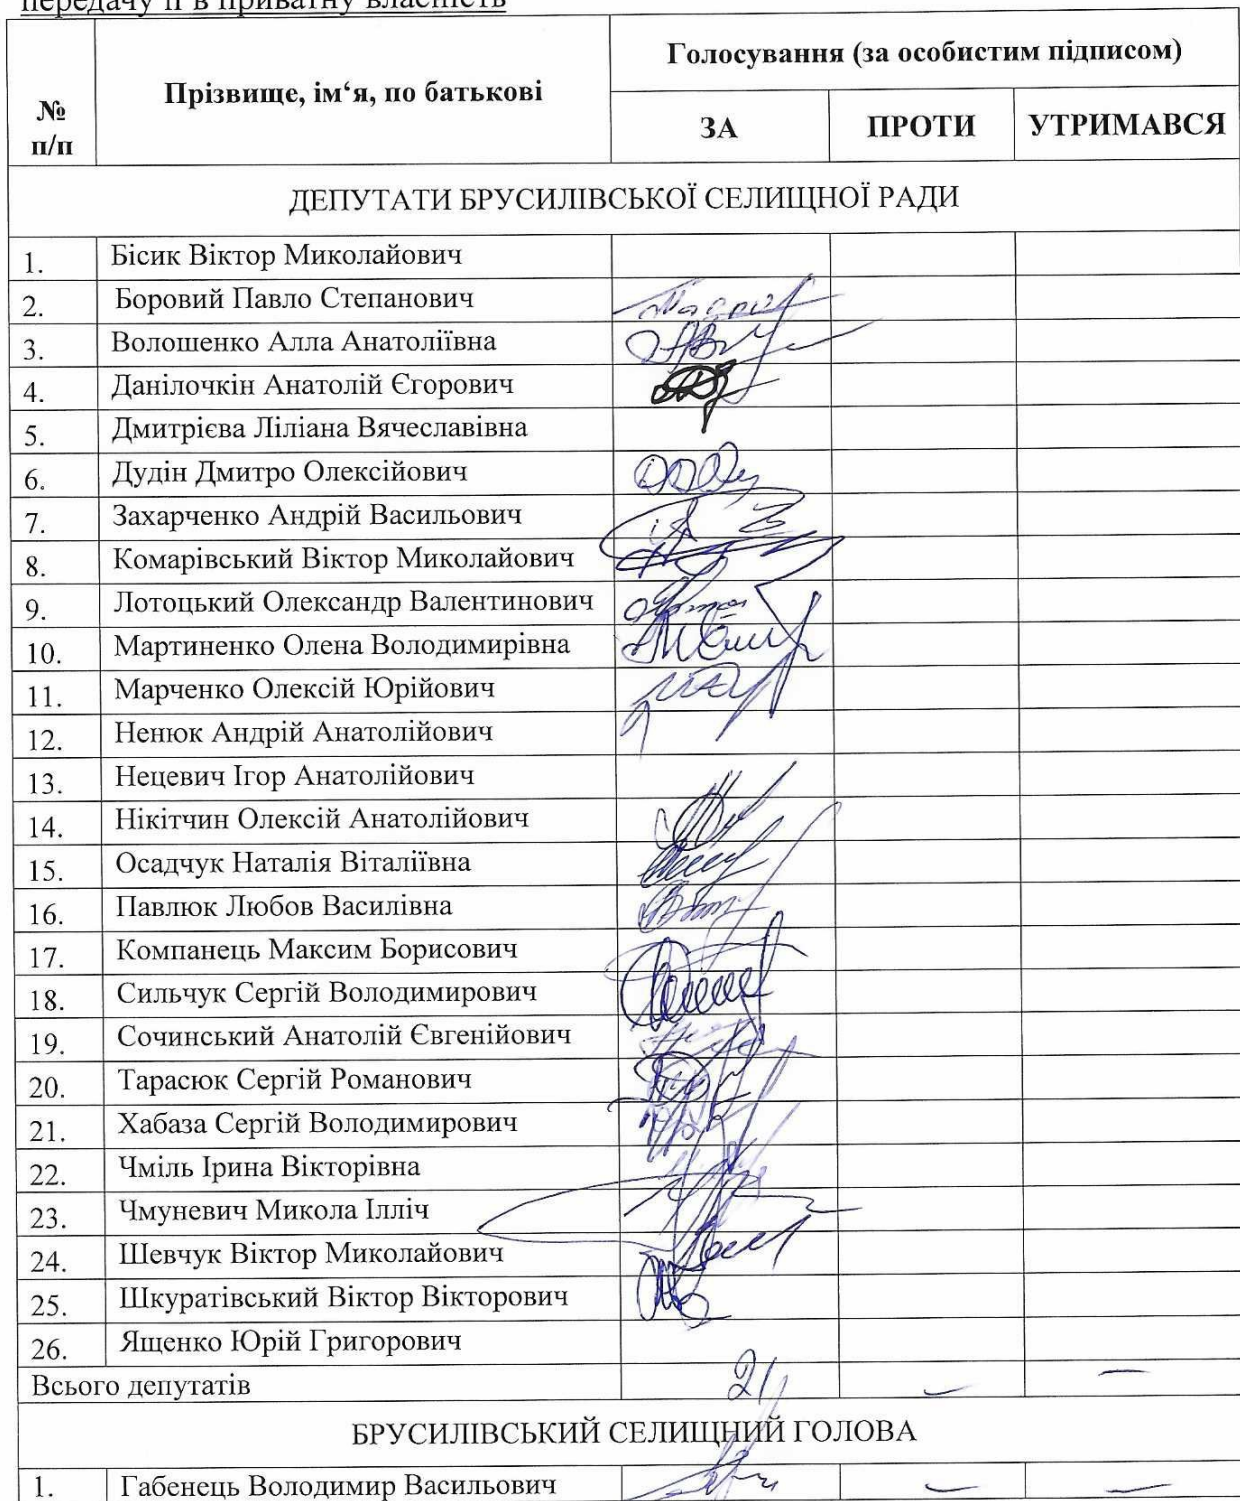 передачу її в приватну власність
№ п/п
Прізвище, ім‘я, по батькові
Голосування (за особистим підписом)
ЗА
ПРОТИ
УТРИМАВСЯ
ДЕПУТАТИ БРУСИЛІВСЬКОЇ СЕЛИЩНОЇ РАДИ
1. Бісик Віктор Миколайович
2. Боровий Павло Степанович
3. Волошенко Алла Анатоліївна
4. Данілочкін Анатолій Єгорович
5. Дмитрієва Ліліана Вячеславівна
6. Дудін Дмитро Олексійович
7. Захарченко Андрій Васильович
8. Комарівський Віктор Миколайович
9. Лотоцький Олександр Валентинович
10. Мартиненко Олена Володимирівна
11. Марченко Олексій Юрійович
12. Ненюк Андрій Анатолійович
13. Нецевич Ігор Анатолійович
14. Нікітчин Олексій Анатолійович
15. Осадчук Наталія Віталіївна
16. Павлюк Любов Василівна
17. Компанець Максим Борисович
18. Сильчук Сергій Володимирович
19. Сочинський Анатолій Євгенійович
20. Тарасюк Сергій Романович
21. Хабаза Сергій Володимирович
22. Чміль Ірина Вікторівна
23. Чмуневич Микола Ілліч
24. Шевчук Віктор Миколайович
25. Шкуратівський Віктор Вікторович
26. Ященко Юрій Григорович
Всього депутатів 21 – –
БРУСИЛІВСЬКИЙ СЕЛИЩНИЙ ГОЛОВА
1. Габенець Володимир Васильович – –